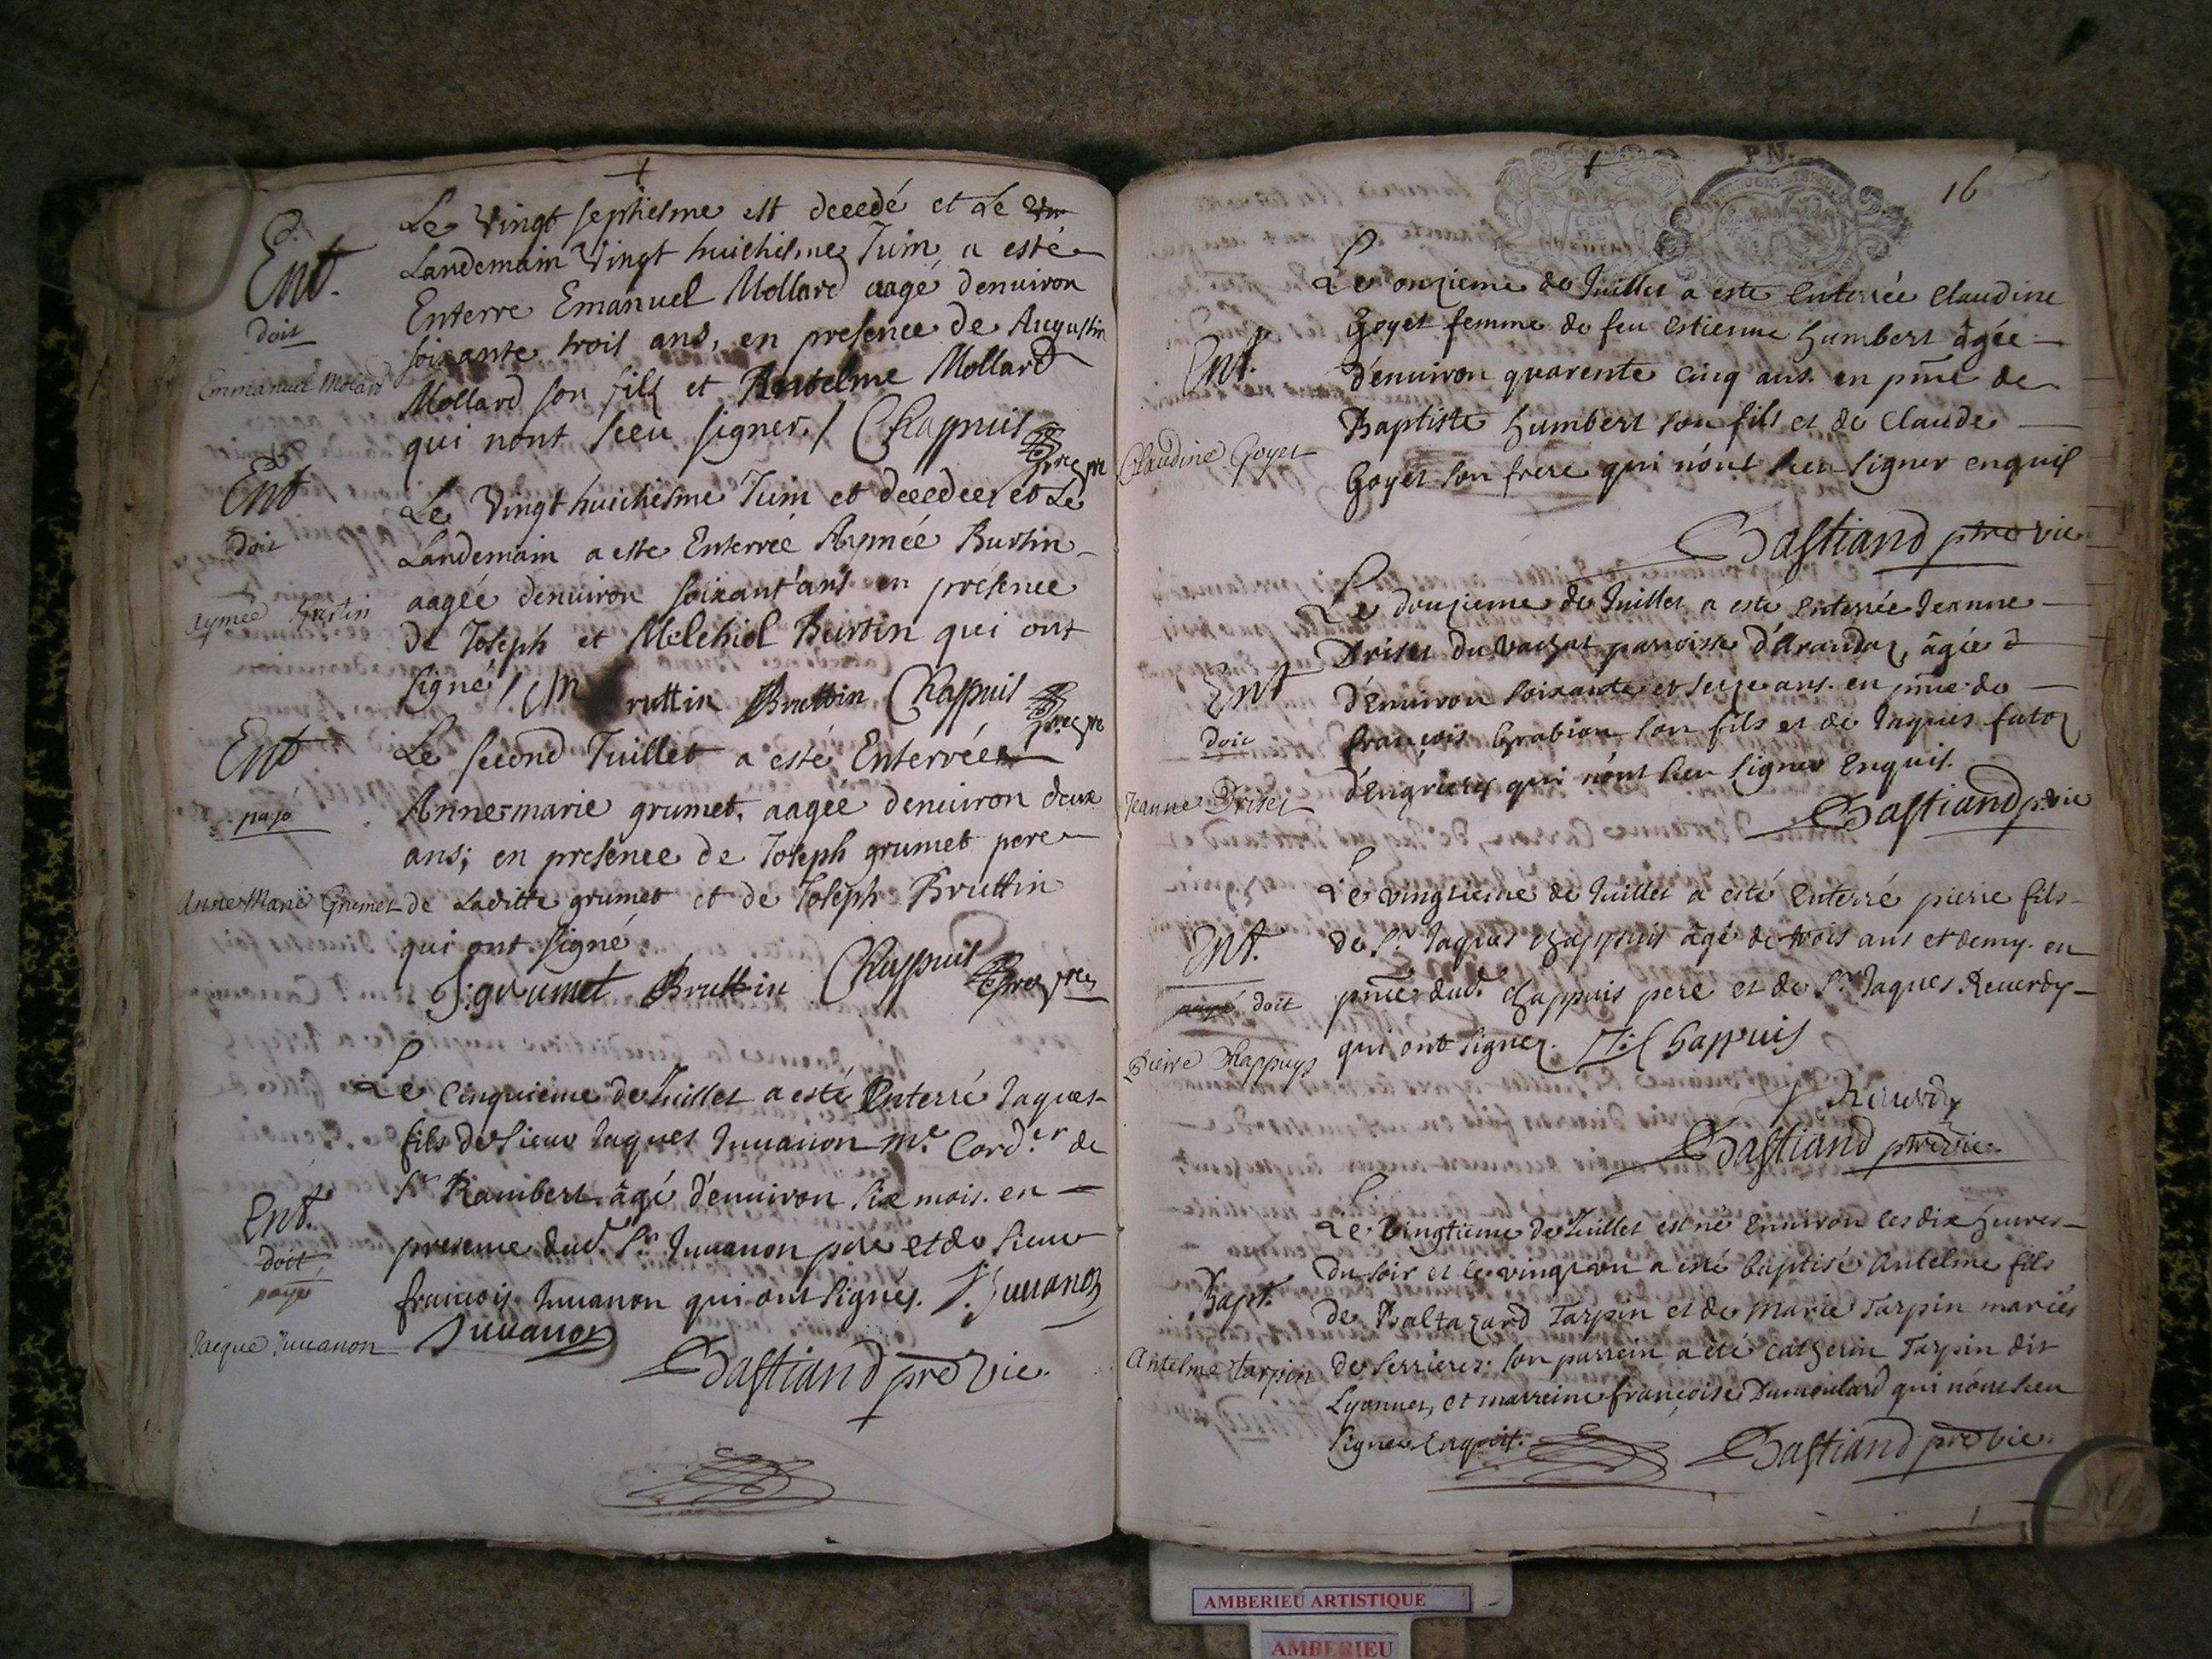 +
Ent.
doit
Emmanuel Molard
Le Vingt septiesme est decedé et Le
Landemain Vingt huichiesme Juin, a esté
Enterre Emanuel Mollard aagé denuiron
soixante trois ans, en presence de Augustin
Mollard son filz et Antelme Mollard
qui nont sceu signer. / Chappuis
Ent
doit
Aymée Burtin
Le Vingt huichiesme Juin et decedee et Le
Landemain a este Enterreé Aymée Burtin
aagée denuiron soixant'ans en présence
de Joseph et Melchiol Burtin qui ont
signé / Bruttin Chappuis
Ent
payé
Anne Marie Grumet
Le second Juillet a esté Enterrée
Annemarie grumet, aagée denuiron deux
ans; en presence de Joseph grumet pere
de Laditte grumet et de Joseph Bruttin
qui ont signé
J: grumet Bruttin Chappuis
Ent.
doit
payé
Jacque Juuanon
Le Cinquieme de Juillet a esté Enterré Jaques
fils de sieur Jaques Juuanon me. Cord.er de
St Rambert âgé d'enuiron six mois. en
presence dud. Sr Juuanon pere et de sieur
francois Juuanon qui ont signés. J. Juuanon
Juuanon
Bastiand pre vic.
+
P N.
16
Ent.
Claudine Goyet
Le onzieme de Juillet a este Enterrée Claudine
Goyet femme de feu Estienne humbert âgée
d'enuiron quarente cinq ans. en pnce de
Baptiste humbert son fils et de Claude
Goyet son frere qui n'ont sceu signer enquis
Bastiand ptre vic
Ent
doit
Jeanne Driset
Le douzieme de Juillet a esté enterrée Jeanne
Driset du parroisse d'Arandaz, âgée
d'Enuiron soixante et seize ans. en pnce de
françois Grabion son fils et de Jaques
qui n'ont sceu signer Enquis.
Bastiand p vic
Ent.
payé doit
Pierre Chappuys
Le vingtieme de Juillet a esté Enterré pierre fils
de Sr Jaques Chappuis âgé de trois ans et demy. en
pnce dud. Chappuis pere et de Sr Jaques Reuerdy
qui ont signez. J: Chappuis
Reuerdy
Bastiand ptre vic.
Bapt.
Antelme tarpin
Le Vingtieme de Juillet est né Enuiron les dix heures
du soir et le vingt un a esté baptisé Antelme fils
de Baltazard Tarpin et de Marie Tarpin mariés
de Serrieres. son parrein a été Catherin Tarpin dit
Lyonnet, et marreine françoise Dumoulard qui n'ont sceu
signer Enquis.
Bastiand pre vic.
AMBERIEU ARTISTIQUE
AMBERIEU